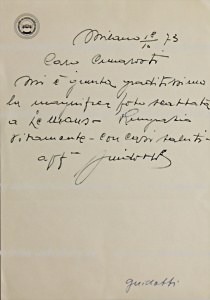 Milano 12/10 73
Caro
mi è giunta graditissima
la magnifica foto scattata
a Le Mans. Ringrazio
vivamente - con cari saluti -
aff
guidotti